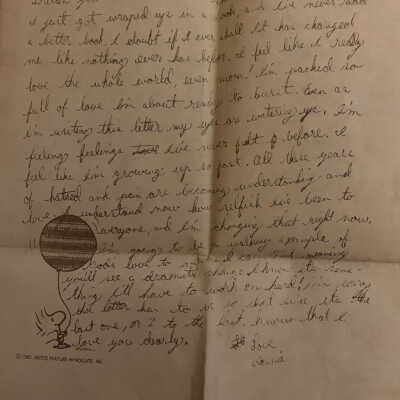 it just got wraped up in a book, & I've never read
a better book, I doubt if I ever shall. It has changed
me like nothing ever has before. I feel like I really
love the whole world, even more. I'm packed so
full of love I'm about ready to burst. Even as
I'm writing this letter my eyes are watering up. I'm
feeling feelings I've never felt before. I
feel like I'm growing up so fast. All these years
of hatred and pain are becoming understanding and
love. understand now how selfish I've been to
everyone, and I'm changing that right now.
I'm going to be a walking example of
God's love to
you'll see a dramatic change. I know it's some-
thing I'll have to work on hard! I'm sorry
the letter has to be so short since, it's the
last one, or 2 to the last. Know that I
love you dearly.
Love
© 1965 UNITED FEATURE SYNDICATE, INC.